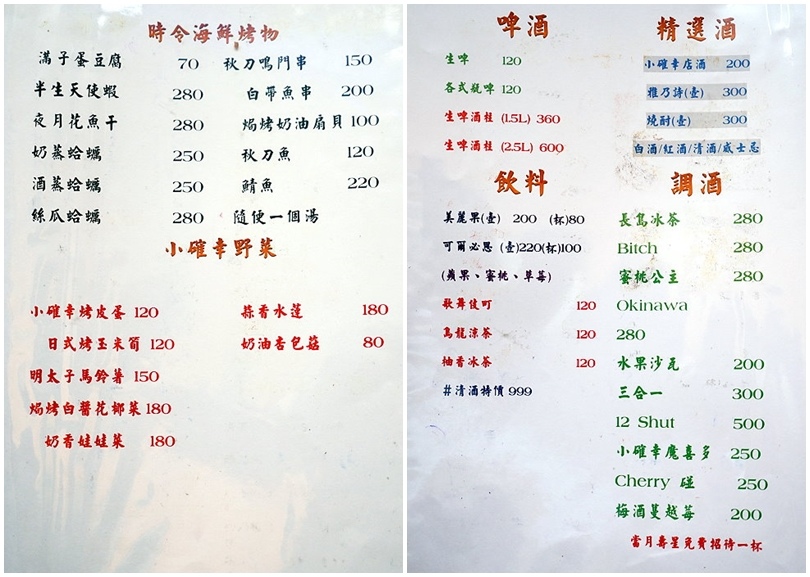 時令海鮮烤物
滿子蛋豆腐 70
半生天使蝦 280
夜月花魚干 280
奶蒸蛤蠣 250
酒蒸蛤蠣 250
絲瓜蛤蠣 280
秋刀鳴門串 150
白帶魚串 200
焗烤奶油扇貝 100
秋刀魚 120
鯖魚 220
隨便一個湯
小確幸野菜
小確幸烤皮蛋 120
日式烤玉米筍 120
明太子馬鈴薯 150
焗烤白醬花椰菜 180
奶香娃娃菜 180
蒜香水蓮 180
奶油杏包菇 80
啤酒
生啤 120
各式瓶啤 120
生啤酒桂 (1.5L) 360
生啤酒桂 (2.5L) 600
飲料
美麗果(壺) 200 (杯)80
可爾必思 (壺)220(杯)100
(蘋果、蜜桃、草莓)
歌舞伎町 120
烏龍涼茶 120
柚香冰茶 120
#清酒特價 999
精選酒
小確幸店酒 200
雅乃詩(壺) 300
燒酎(壺) 300
白酒/紅酒/清酒/威士忌
調酒
長島冰茶 280
Bitch 280
蜜桃公主 280
Okinawa
280
水果沙瓦 200
三合一 300
12 Shut 500
小確幸魔喜多 250
Cherry 碰 250
梅酒蔓越莓 200
當月壽星免費招待一杯